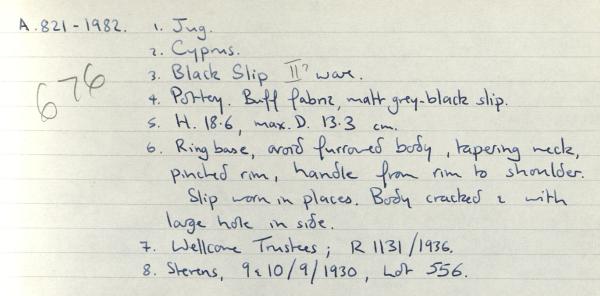 A.821-1982. 1. Jug.
2. Cyprus.
3. Black Slip II? ware.
676
4. Pottery. Buff fabric, matt grey-black slip.
5. H. 18.6, max. D. 13.3 cm.
6. Ring base, ovoid furrowed body, tapering neck,
pinched rim, handle from rim to shoulder.
Slip worn in places. Body cracked & with
large hole in side.
7. Wellcome Trustees; R 1131/1936.
8. Stevens, 9 & 10/9/1930, Lot 556.